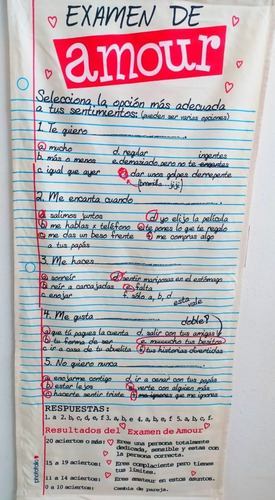 EXAMEN DE
amour
Selecciona la opción más adecuada
a tus sentimientos: (pueden ser varias opciones)
1. Te quiero
a) mucho d. regular ingentes
b. más o menos e. demasiado pero no te engentes
c. igual que ayer f. dar unos golpes derrepente
(bromilla jiji)
2. Me encanta cuando
a. salimos juntos d) yo elijo la película
b) me hablas x teléfono e) te pones lo que te regalo
c) me das un beso frente f) me compras algo
a tus papás
3. Me haces
a) sonreír d) sentir mariposas en el estómago
b) reír a carcajadas e. falta
c. enojar f. sólo a, b, d esta
vale
4. Me gusta doble?
a) que tú pagues la cuenta d. salir con tus amigas
b) tu forma de ser e. muuucho tus besitos
c) ir a casa de tu abuelita f) tus historias divertidas
5. No quiero nunca
a) enojarme contigo d. ir a cenar con tus papás
b) estar lejos e) verte con alguien más
c) hacerte sentir triste f) me ignores que me ignores
RESPUESTAS:
1. a 2. b, c, d, e, f 3. a, b, e 4. a, b, e, f 5. a, b, c, f.
Resultados del Examen de Amour
20 aciertos o más: Eres una persona totalmente
dedicada, sensible y estas con
la persona correcta.
15 a 19 aciertos: Eres complaciente pero tienes
tus límites.
11 a 14 aciertos: Eres amateur en estos asuntos.
0 a 10 aciertos: Cambia de pareja.